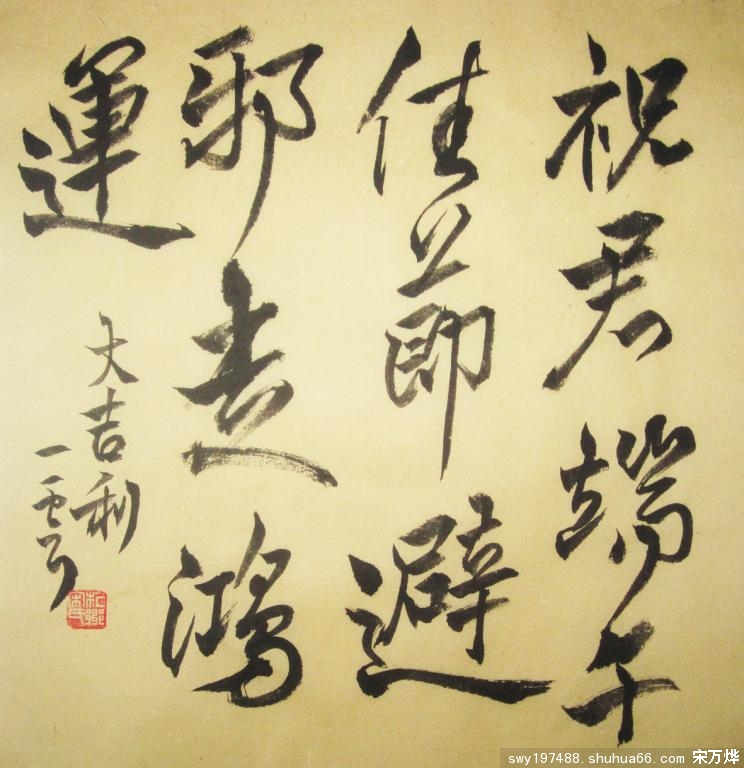 祝君端午
佳節避
邪走鴻
運
大吉利
一雲
swy197488.shuhua66.com 宋万烨